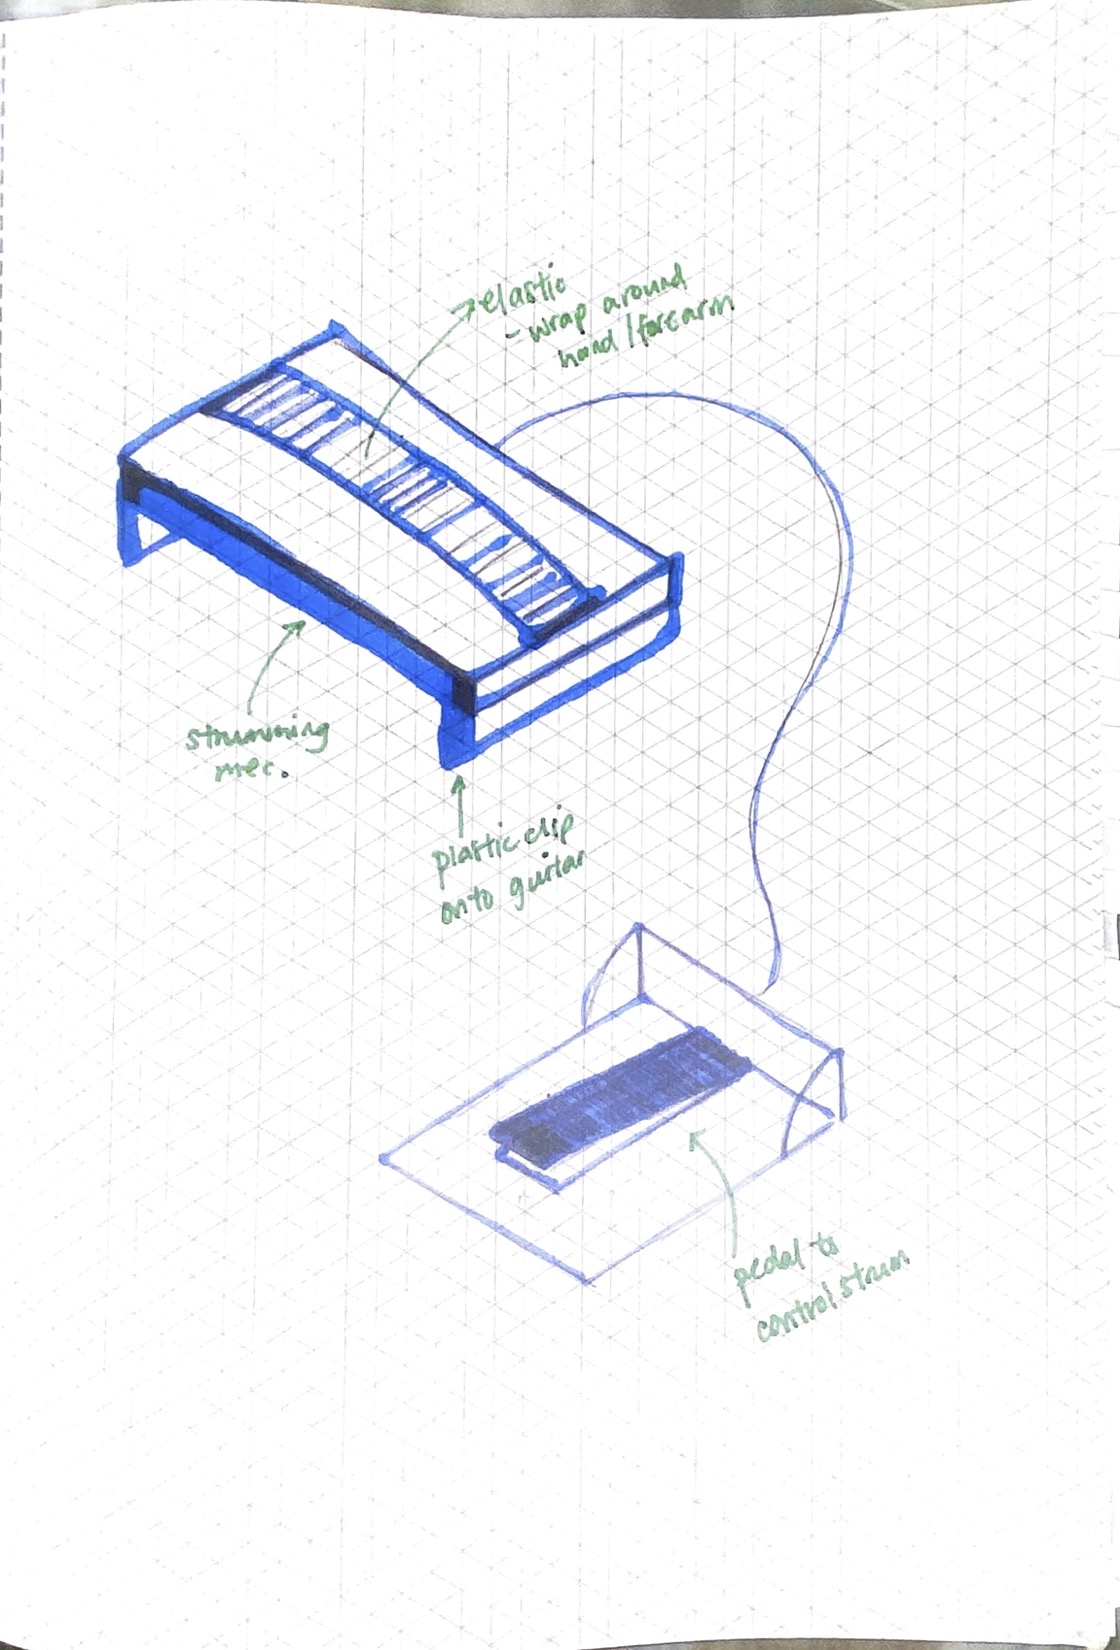 elastic
- wrap around
hand/forearm
strumming
mec.
plastic clip
onto guitar
pedal to
control strum